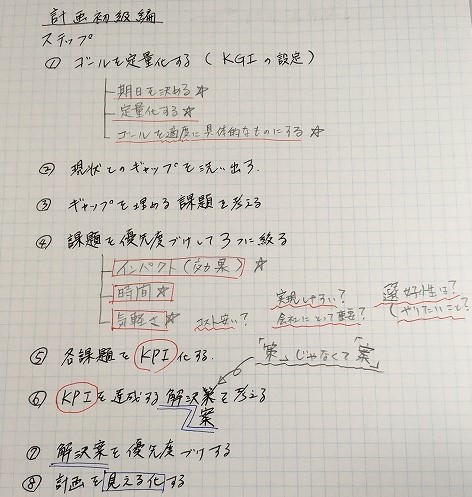 計画初級編
ステップ
① ゴールを定量化する(KGIの設定)
期日を決める☆
定量化する☆
ゴールを適度に具体的なものにする☆
② 現状とのギャップを洗い出す.
③ ギャップを埋める課題を考える
④ 課題を優先度づけして3つに絞る
インパクト(効果)☆
時間☆
気軽さ☆ コスト安い?
実現しやすい?
会社にとって重要?
選好性は?
(やりたいこと?
⑤ 各課題をKPI化する.
「策」じゃなくて「案」
⑥ KPIを達成する解決策を考える
案
⑦ 解決案を優先度づけする
⑧ 計画を見える化する